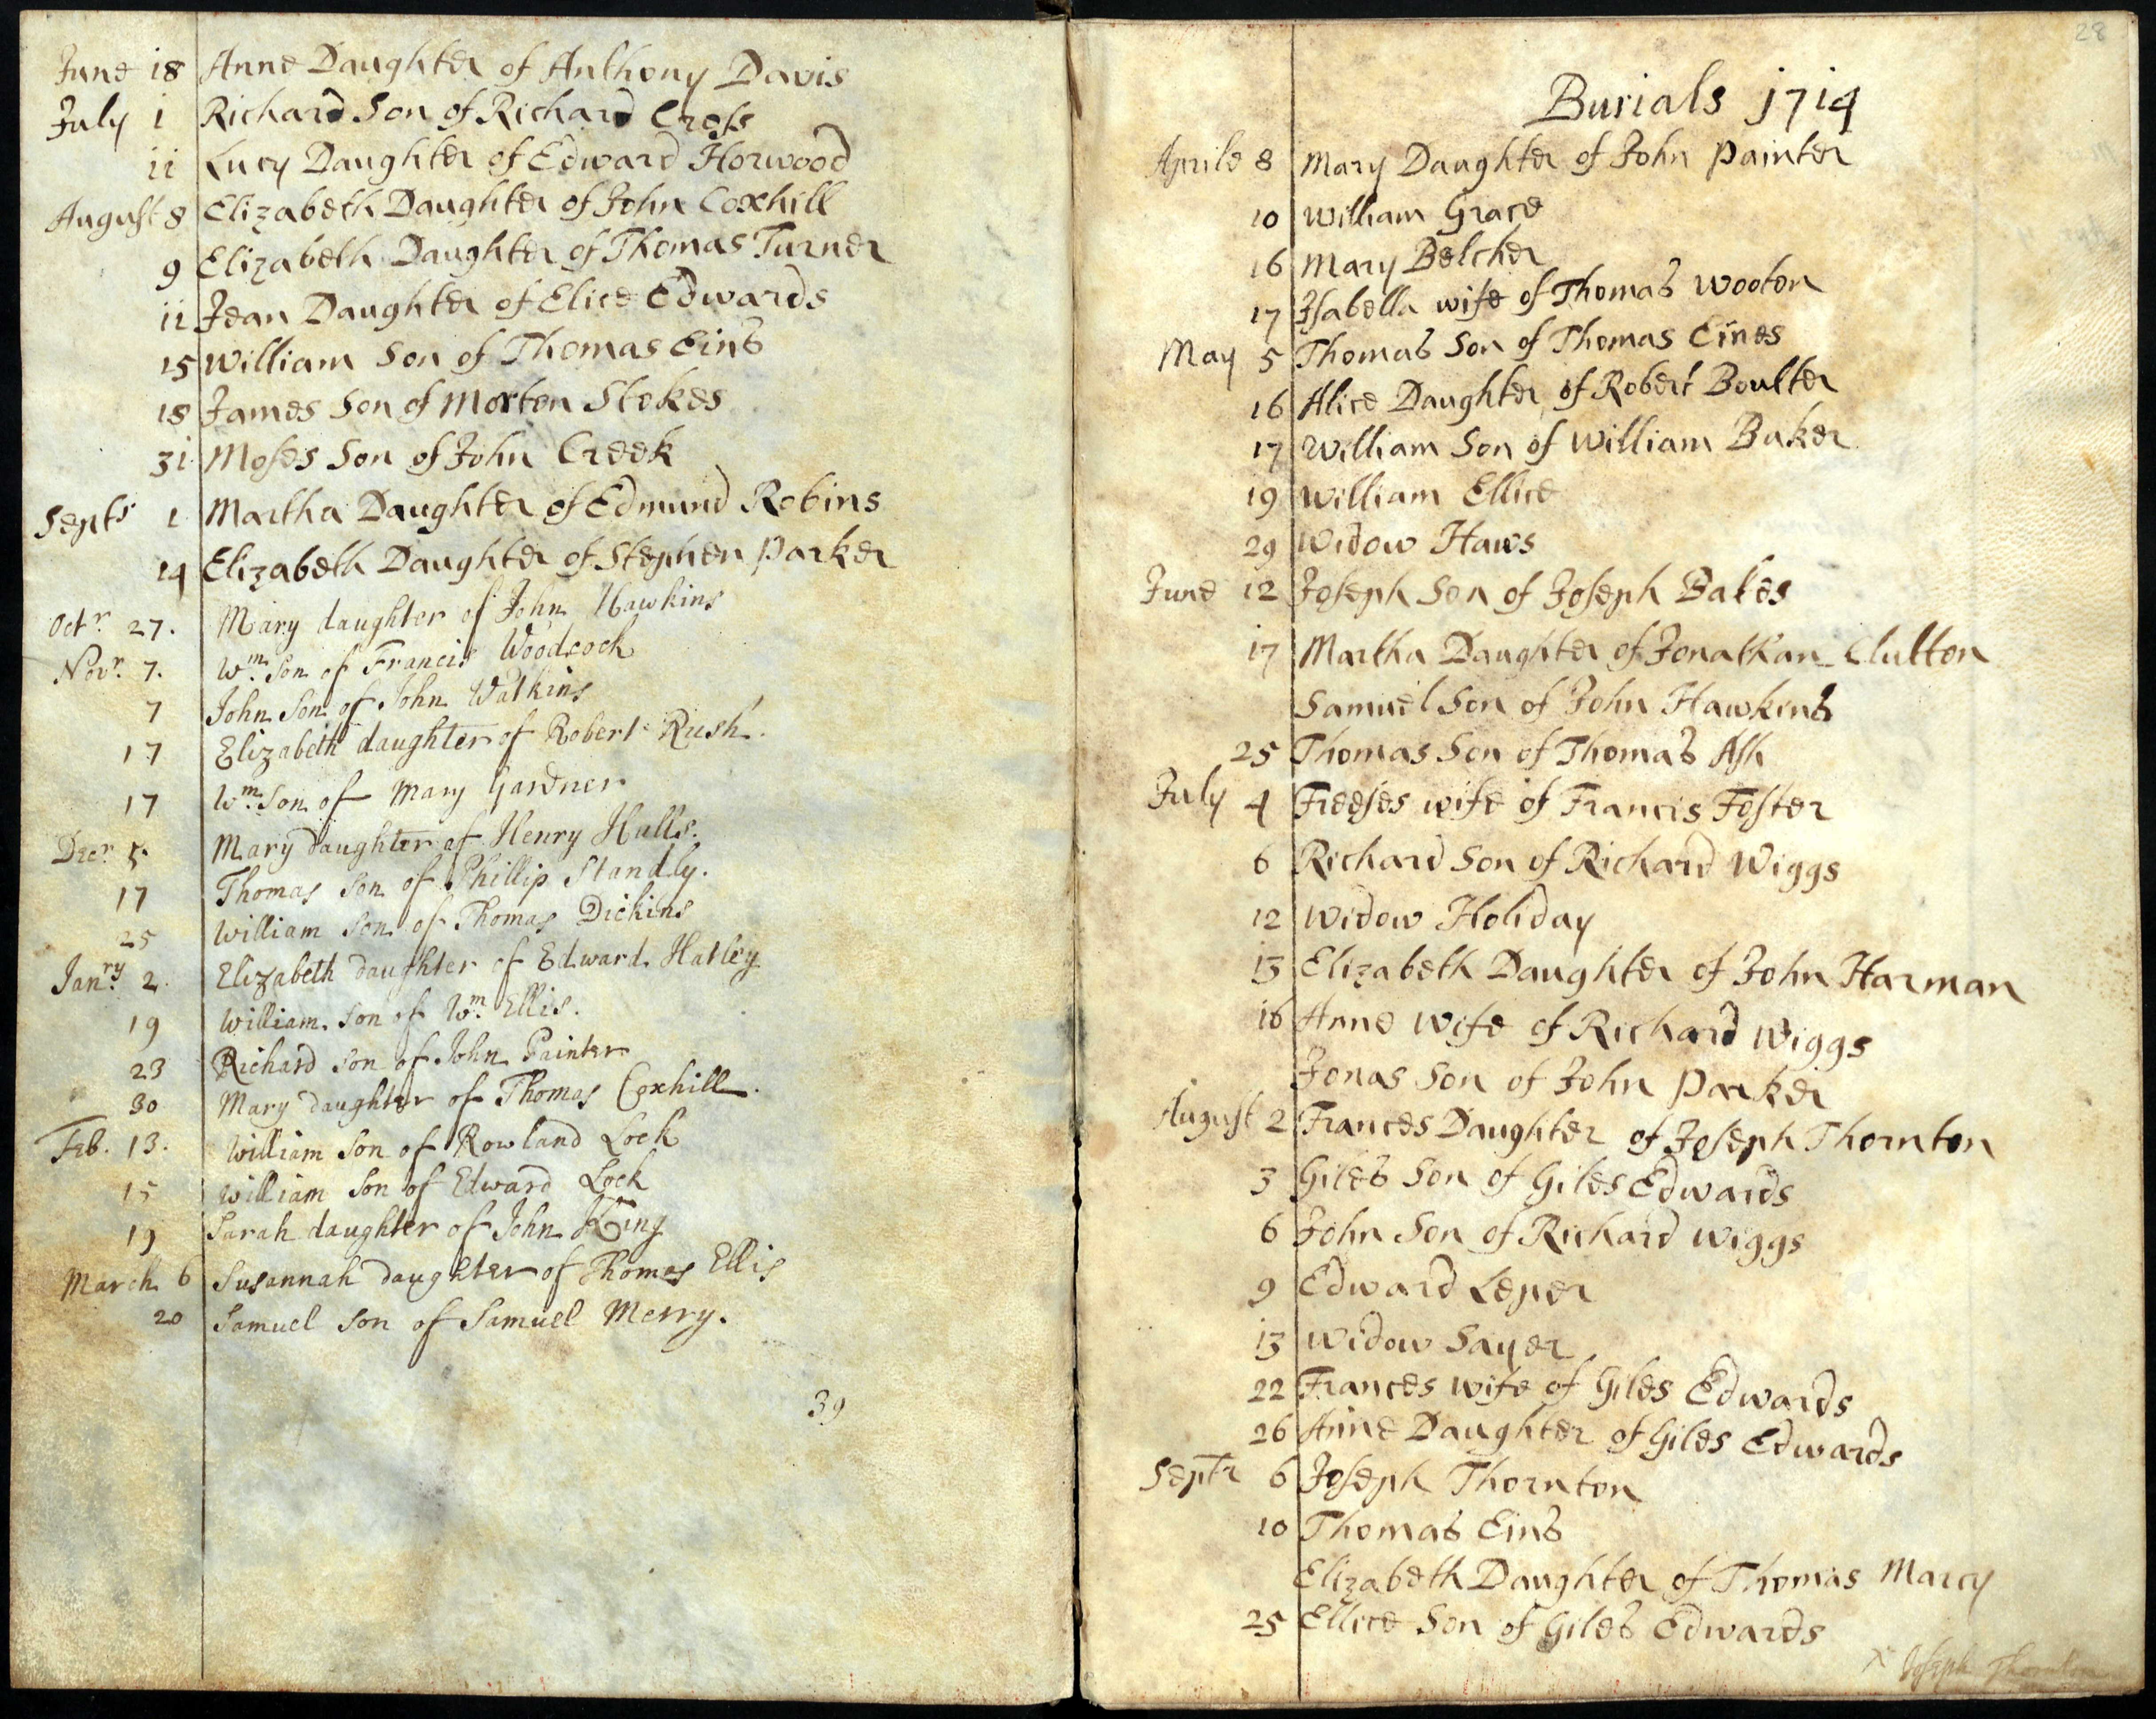 June 18 Anne Daughter of Anthony Davis
July 1 Richard Son of Richard Cross
11 Lucy Daughter of Edward Horwood
August 8 Elizabeth Daughter of John Coxhill
9 Elizabeth Daughter of Thomas Turner
11 Jean Daughter of Elice Edwards
15 William Son of Thomas Eins
18 James Son of Morton Stokes
31 Moses Son of John Creek
Septr 1 Martha Daughter of Edmund Robins
14 Elizabeth Daughter of Stephen Parker
Octr 27. Mary daughter of John Hawkins
Novr. 7. Wm. Son of Francis Woodcock
7 John Son of John Watkins
17 Elizabeth daughter of Robert Rush.
17 Wm. Son of Mary Gardner
Decr 5. Mary daughter of Henry Hulls.
17 Thomas Son of Phillip Standly.
25 William Son of Thomas Dickins
Janry. 2. Elizabeth daughter of Edward Hatley
19 William Son of Wm. Ellis.
23 Richard Son of John Painter
30 Mary daughter of Thomas Coxhill.
Feb. 13. William Son of Rowland Lock
15 William Son of Edward Lock
19 Sarah daughter of John King
March 6 Susannah daughter of Thomas Ellis
20 Samuel Son of Samuel Merry.
39
28
Burials 1714
Aprile 8 Mary Daughter of John Painter
10 William Grace
16 Mary Belcher
17 Isabella wife of Thomas Wooton
May 5 Thomas Son of Thomas Eines
16 Alice Daughter of Robert Boulter
17 William Son of William Baker
19 William Ellice
29 Widow Haws
June 12 Joseph Son of Joseph Bates
17 Martha Daughter of Jonathan Clutton
Samuel Son of John Hawkins
25 Thomas Son of Thomas Ash
July 4 Freeses wife of Francis Foster
6 Richard Son of Richard Wiggs
12 Widow Holiday
13 Elizabeth Daughter of John Harman
16 Anne Wife of Richard Wiggs
Jonas Son of John Parker
August 2 Frances Daughter of Joseph Thornton
3 Giles Son of Giles Edwards
6 John Son of Richard Wiggs
9 Edward Leper
13 Widow Sayer
22 Frances wife of Giles Edwards
26 Anne Daughter of Giles Edwards
Septr 6 Joseph Thornton
10 Thomas Eins
Elizabeth Daughter of Thomas Marcy
25 Ellice Son of Giles Edwards
x Joseph Thornton